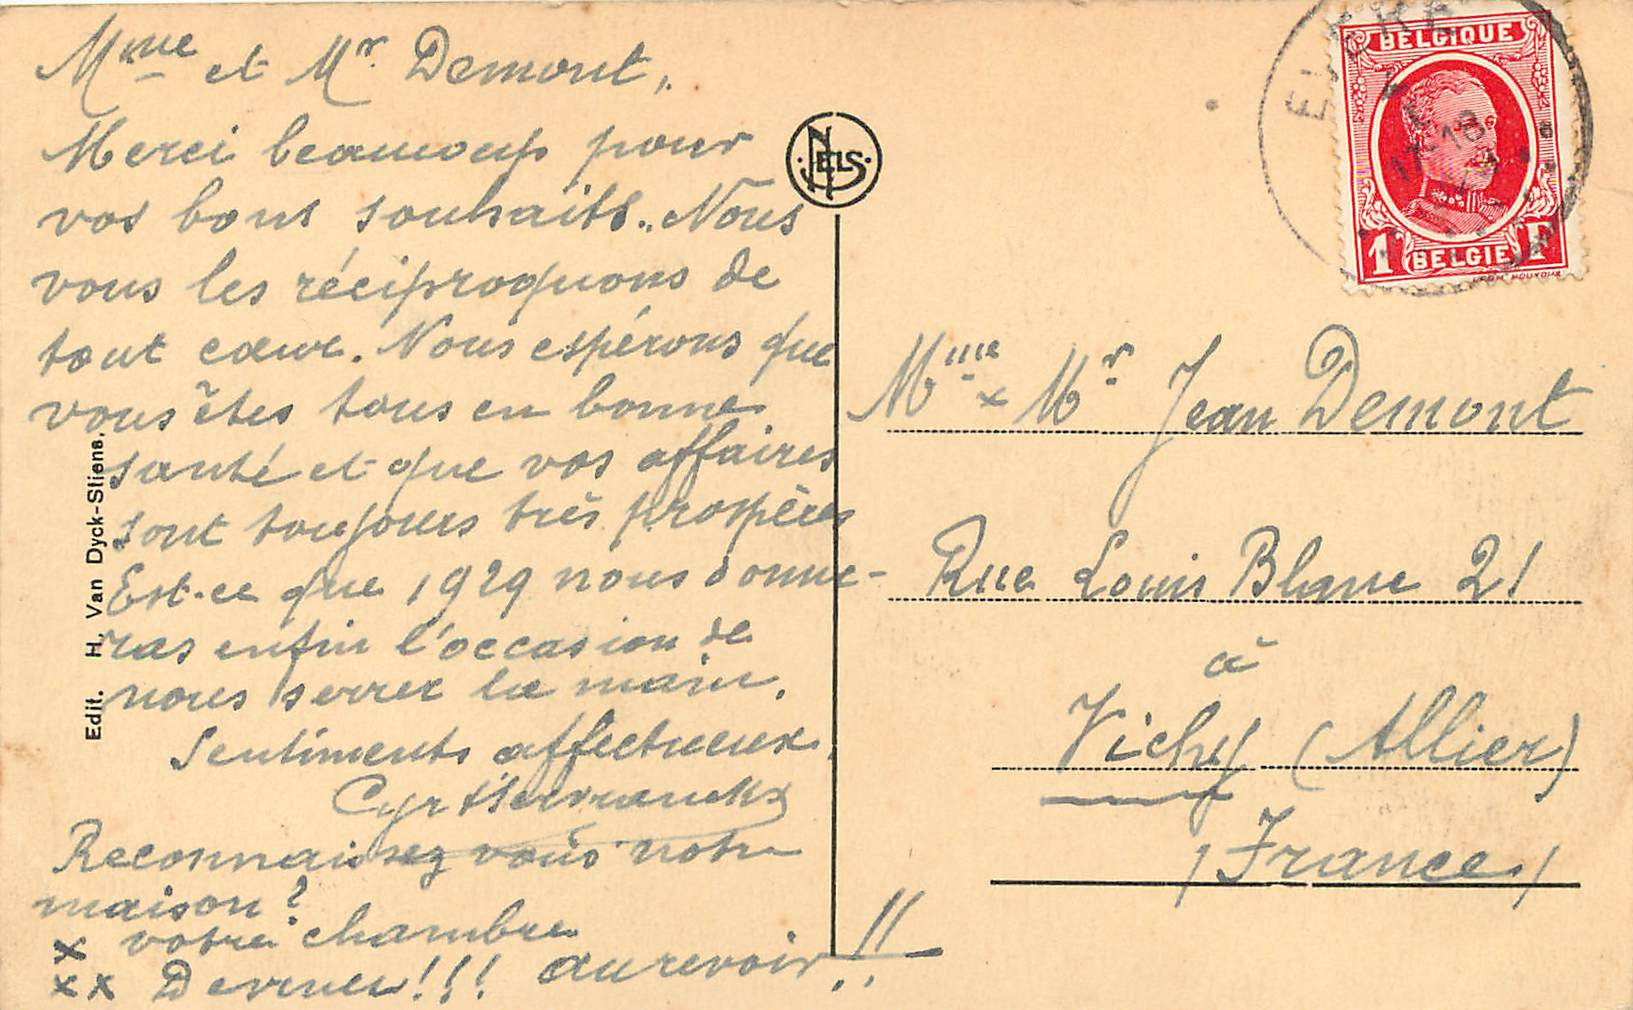 Mme et Mr. Demont,
Merci beaucoup pour
vos bons souhaits. Nous
vous les réciproquons de
tout cœur. Nous espérons que
vous êtes tous en bonne
santé et que vos affaires
sont toujours très prospères
Est-ce que 1929 nous donne-
ras enfin l'occasion de
nous serrer la main.
Sentiments affectueux.
Cyr
Reconnaissez vous notre
maison?
x votre chambre
xx !!! au revoir!!
Edit. H. Van Dyck-Stiens,
NELS
BELGIQUE
1F
BELGIE
Mme x Mr Jean Demont
Rue Louis Blanc 21
à
Vichy (Allier)
/France/